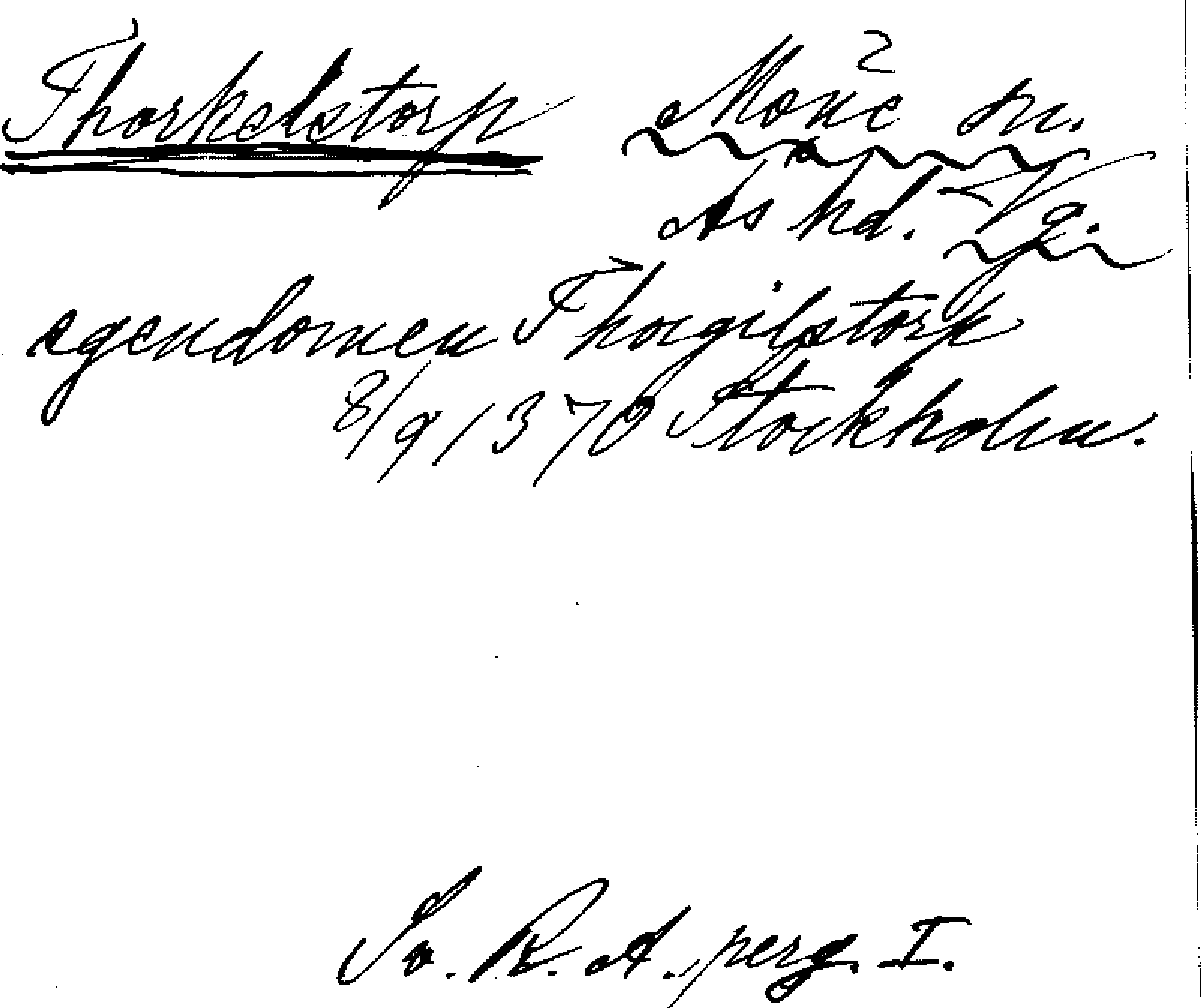 Thorkelstorp Mone sn.
Ås hd. Vg.
egendomen Thorgilstorp
8/9 1370 Stockholm.
Sv. R. A. perg. I.